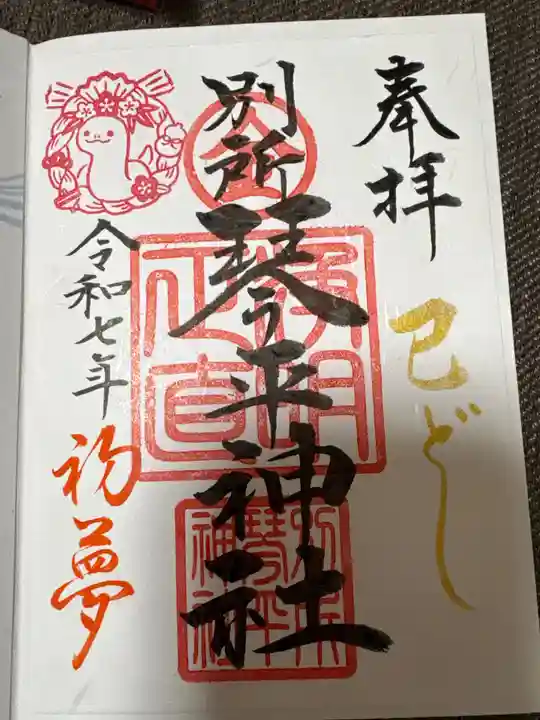 奉拝
巳どし
別所琴平神社
金
浄明正直
別所琴平神社
令和七年
初夢